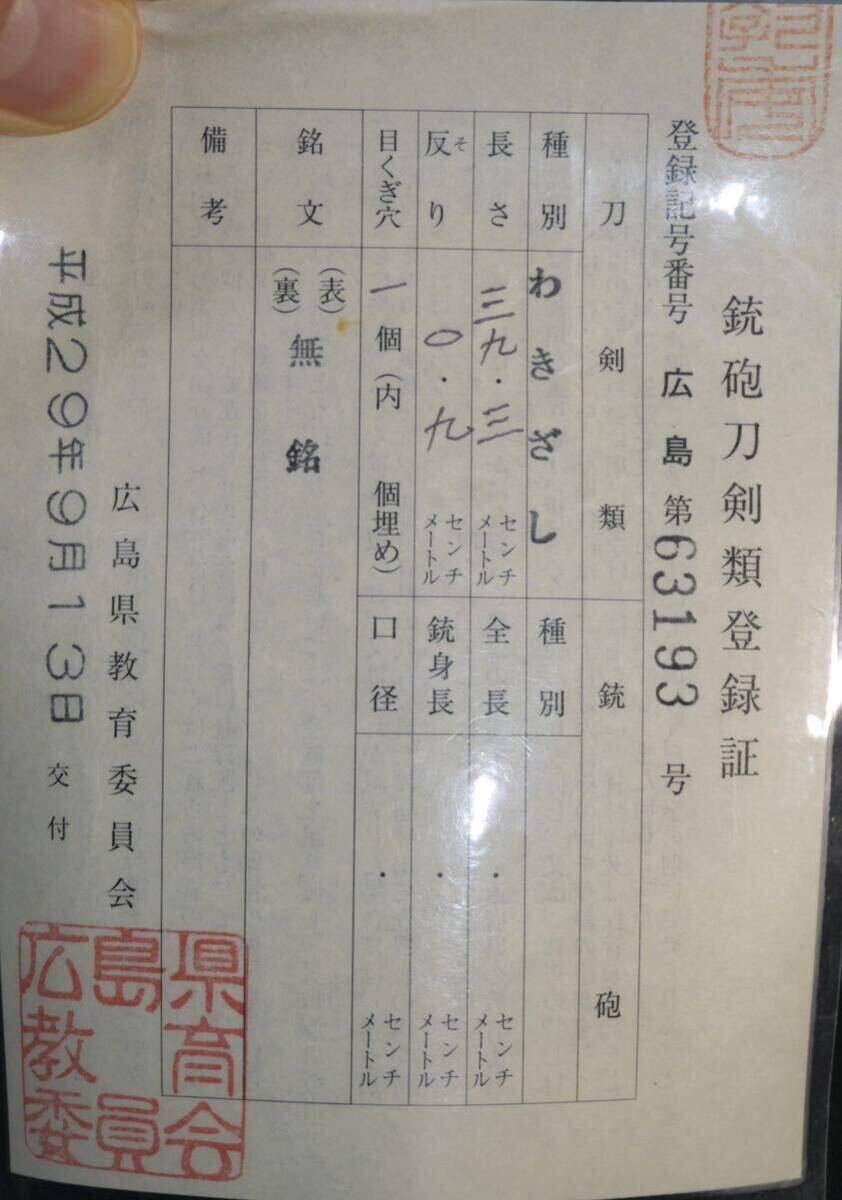 銃砲刀剣類登録証
登録記号番号 広島 第63193号
刀剣類
銃砲
種別 わきざし
種別
長さ 三九・三 センチメートル
全長 ・ センチメートル
反り 〇・九 センチメートル
そ
銃身長 ・ センチメートル
目くぎ穴 一個(内 個埋め)
口径 ・ センチメートル
銘文 (表)
(裏) 無銘
備考
広島県教育委員会
平成29年9月13日 交付
広島県教育委員会